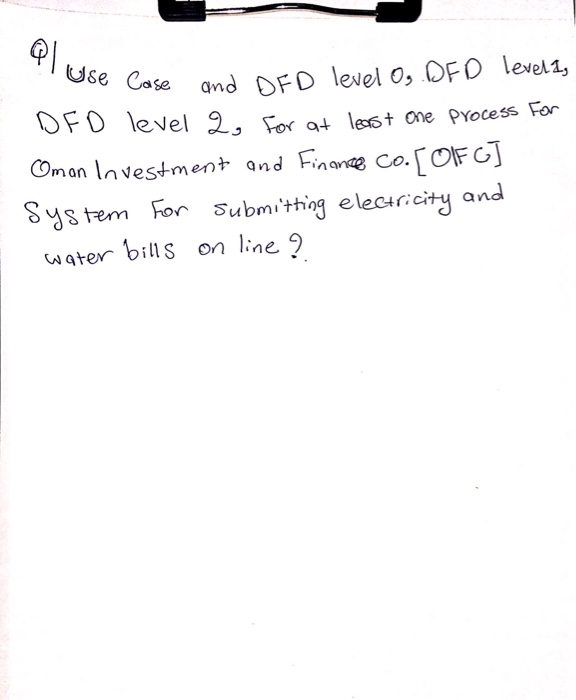 Q/ Use Case and DFD level 0, DFD level 1,
DFD level 2, For at least one process For
Oman Investment and Finance Co. [OIFC]
System For submitting electricity and
water bills on line ?